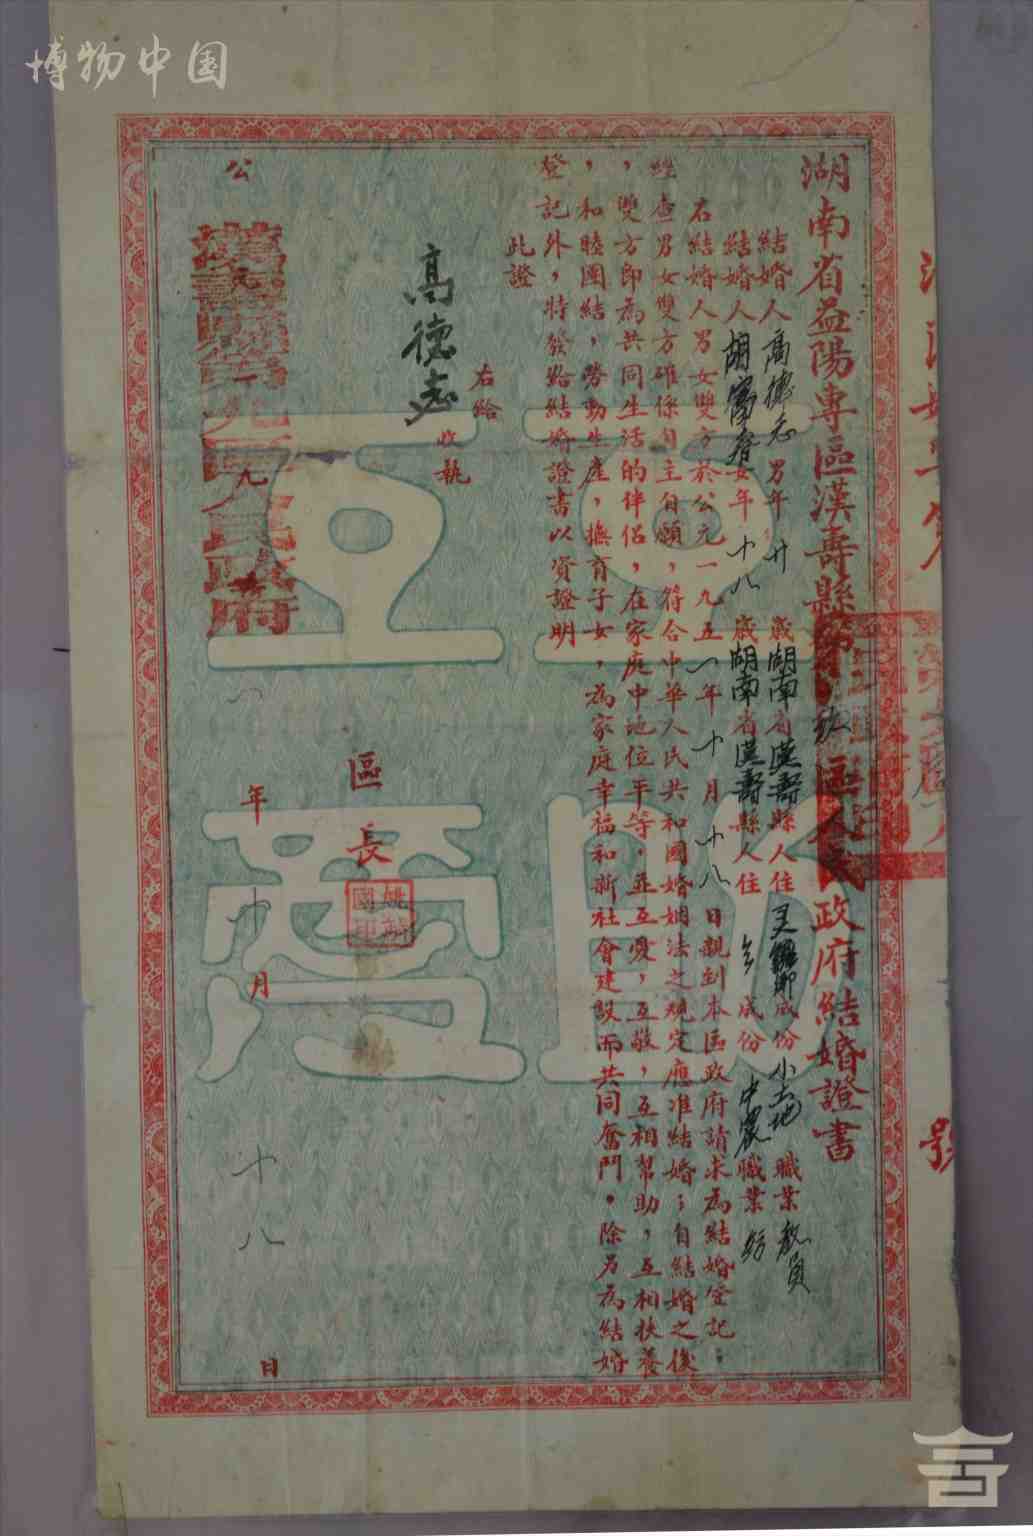 博物中国
湖南省益陽專區漢壽縣第 區人民政府結婚證書
結婚人高德志男年廿歲湖南省漢壽縣人住 成份小土地職業教員
結婚人胡富春女年十八歲湖南省漢壽縣人住 成份中農職業紡
右結婚人男女雙方於公元一九五一年十月十八日親到本區政府請求為結婚登記
經查男女雙方確係自主自願，符合中華人民共和國婚姻法之規定應准結婚；自結婚之後
，雙方即為共同生活的伴侶，在家庭中地位平等，並互愛，互敬，互相幫助，互相扶養
，和睦團結，勞動生產，撫育子女，為家庭幸福和新社會建設而共同奮鬥。除另為結婚
登記外，特發給結婚證書以資證明
此證
右給
高德志
收執
區長
姚 國印
公元一九五一年十月十八日
漢壽縣第九區人民政府
互助
互愛
號